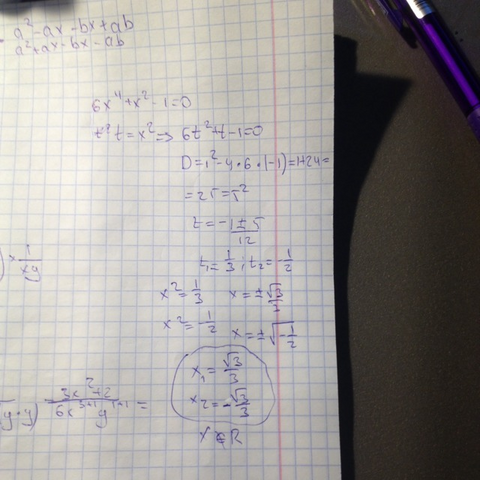 a²-ax-bx+ab
a²+ax-bx-ab
6x⁴+x²-1=0
t=x² => 6t²+t-1=0
D=1²-4·6·(-1)=1+24=
=25=5²
t=-1±5/12
t₁=1/3; t₂=-1/2
) × 1/xy
x²=1/3 x=±√3/3
x²=-1/2 x=±√-1/2
x₁=√3/3
x₂=-√3/3
y·y) 3x²+2/6x³⁺¹y¹⁺¹ =
x∈R